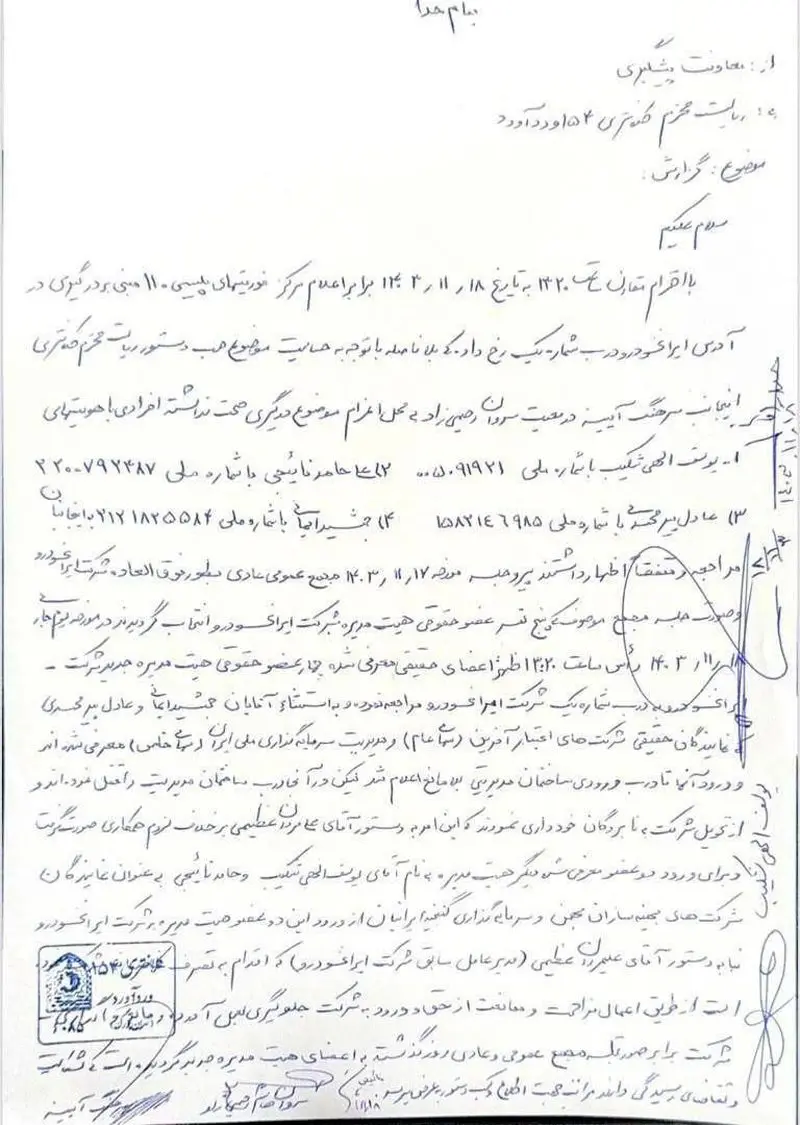 بنام خدا
از: معاونت پیشگیری
به: ریاست محترم کلانتری ۱۵۴ وردآورد
موضوع: گزارش:
سلام علیکم
با احترام مقارن ساعت ۱۳۲۰ به تاریخ ۱۸ ر ۱۱ ر ۱۴۰۳ برابر اعلام مرکز فوریتهای پلیسی ۱۱۰ مبنی بر درگیری در
آدرس ایرانخودرو درب شماره یک رخ داده که بلافاصله با توجه به حساسیت موضوع حسب دستور ریاست محترم کلانتری
اینجانب سرهنگ آیینه در معیت سروان رحیمی زاد به محل اعزام موضوع درگیری صحت نداشته افرادی با هویتهای
۱- یوسف الهی شکیب با شماره ملی ۰۰۵۰۹۱۹۲۱ ۲) حامد نائیجی با شماره ملی ۳۲۰۰۷۹۲۴۸۷
۳) عادل پیرمحمدی با شماره ملی ۱۵۸۲۱۴۶۹۸۵ ۴) جمشید ایمانی با شماره ملی ۲۱۲۱۸۲۵۵۸۴ به اینجانبان
مراجعه و متفقاً اظهار داشتند پیرو جلسه مورخه ۱۷ ر ۱۱ ر ۱۴۰۳ مجمع عمومی عادی بطور فوق العاده شرکت ایرانخودرو
و صورت جلسه مجمع موصوف که پنج نفر عضو حقوقی هیت مدیره شرکت ایرانخودرو انتخاب گردیدند در مورخه یوم جاری
۱۸ ر ۱۱ ر ۱۴۰۳ رأس ساعت ۱۳:۲۰ ظهر اعضای حقیقی معرفی شده چهار عضو حقوقی هیت مدیره جدید شرکت -
ایرانخودرو به درب شماره یک شرکت ایرانخودرو مراجعه نموده و به استثناء آقایان جمشید ایمانی و عادل پیرمحمدی
که نمایندگان حقیقی شرکت های اعتبار آفرین (سهامی عام) و مدیریت سرمایه گذاری ملی ایران (سهامی خاص) معرفی شده اند
و ورود آنها تا درب ورودی ساختمان مدیریتی بلامانع اعلام شد لیکن در آنجا درب ساختمان مدیریت را قفل نموده اند و
از تحویل شرکت به نامبردگان خودداری نمودند که این امر به دستور آقای علیمردان عظیمی برخلاف لزوم همکاری صورت گرفت
و برای ورود دو عضو معرفی شده دیگر هیت مدیره به نام آقای یوسف الهی شکیب و حامد نائیجی به عنوان نمایندگان
شرکت های بهینه سازان بهمن و سرمایه گذاری گنجینه ایرانیان از ورود این دو عضو هیت مدیره به شرکت ایرانخودرو
بنا به دستور آقای علیمردان عظیمی (مدیر عامل سابق شرکت ایرانخودرو) که اقدام به تصرف
است از طریق اعمال مزاحمت و ممانعت از حق و ورود به شرکت جلوگیری بعمل آمده و مانع واگذاری -
شرکت برابر صورتجلسه مجمع عمومی و عادی روز گذشته به اعضای هیت مدیره جدید گردیده است که شکایت
و تقاضای رسیدگی دارند مراتب جهت اطلاع و کسب دستور بعرض میرسد
سروان رحیمی زاد
سرهنگ آیینه
کلانتری ۱۵۴
وردآورد
یوسف الهی شکیب
۱۴۰۳ ۱۱ ۱۸